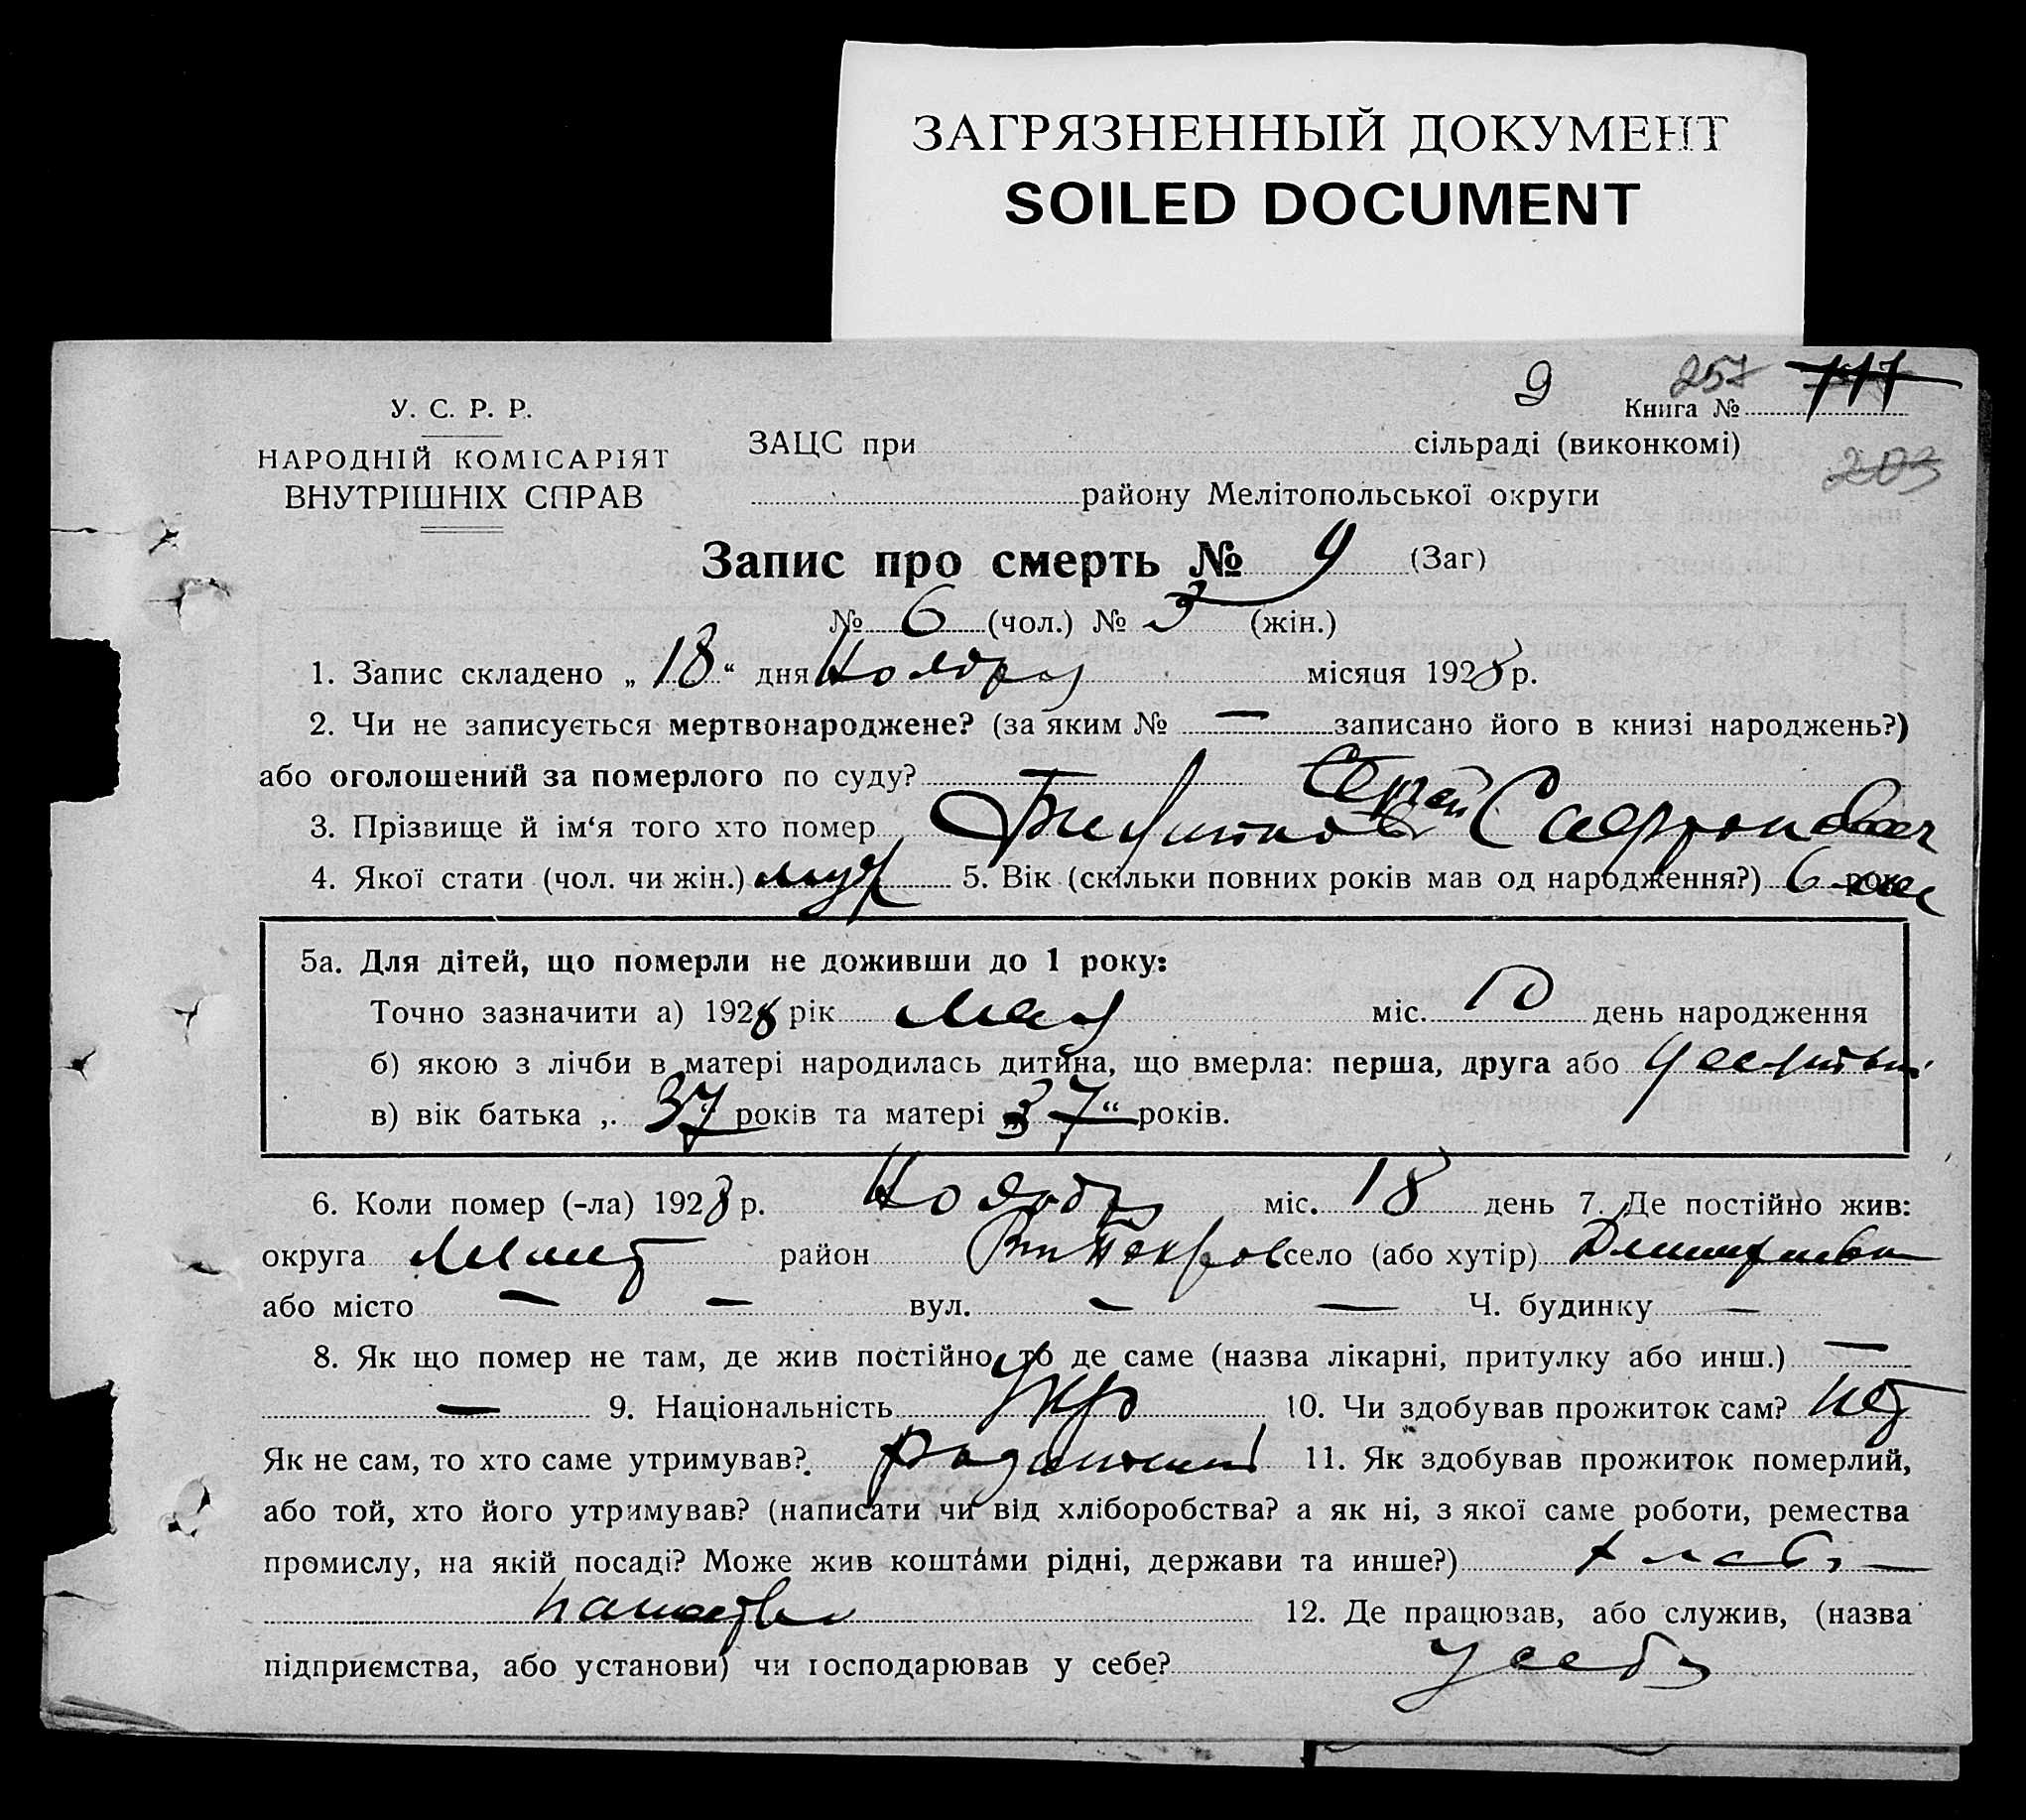 ЗАГРЯЗНЕННЫЙ ДОКУМЕНТ
SOILED DOCUMENT
9 257 717
Книга №
У. С. Р. Р.
НАРОДНІЙ КОМІСАРІЯТ
ВНУТРІШНІХ СПРАВ
ЗАЦС при сільраді (виконкомі)
203
району Мелітопольської округи
Запис про смерть № 9 (Заг)
№ 6 (чол.) № 3 (жін.)
1. Запис складено „ 18 “ дня Ноября місяця 1928 р.
2. Чи не записується мертвонароджене? (за яким № — записано його в книзі народжень?)
або оголошений за померлого по суду? —
3. Прізвище й ім‘я того хто помер Сергей Сафронович
4. Якої стати (чол. чи жін.) муж 5. Вік (скільки повних років мав од народження?) 6 мес
5а. Для дітей, що померли не доживши до 1 року:
Точно зазначити а) 1928 рік Мая міс. 10 день народження
б) якою з лічби в матері народилась дитина, що вмерла: перша, друга або
в) вік батька „ 37 років та матері „ 37 “ років.
6. Коли помер (-ла) 1928 р. Ноября міс. 18 день 7. Де постійно жив:
округа Мелит район село (або хутір)
або місто — — вул. — — Ч. будинку —
8. Як що помер не там, де жив постійно, то де саме (назва лікарні, притулку або инш.) —
— 9. Національність Укр 10. Чи здобував прожиток сам? нет
Як не сам, то хто саме утримував? 11. Як здобував прожиток померлий,
або той, хто його утримував? (написати чи від хліборобства? а як ні, з якої саме роботи, ремества
промислу, на якій посаді? Може жив коштами рідні, держави та инше?) хлебо
пашество 12. Де працював, або служив, (назва
підприємства, або установи) чи господарював у себе? у себя